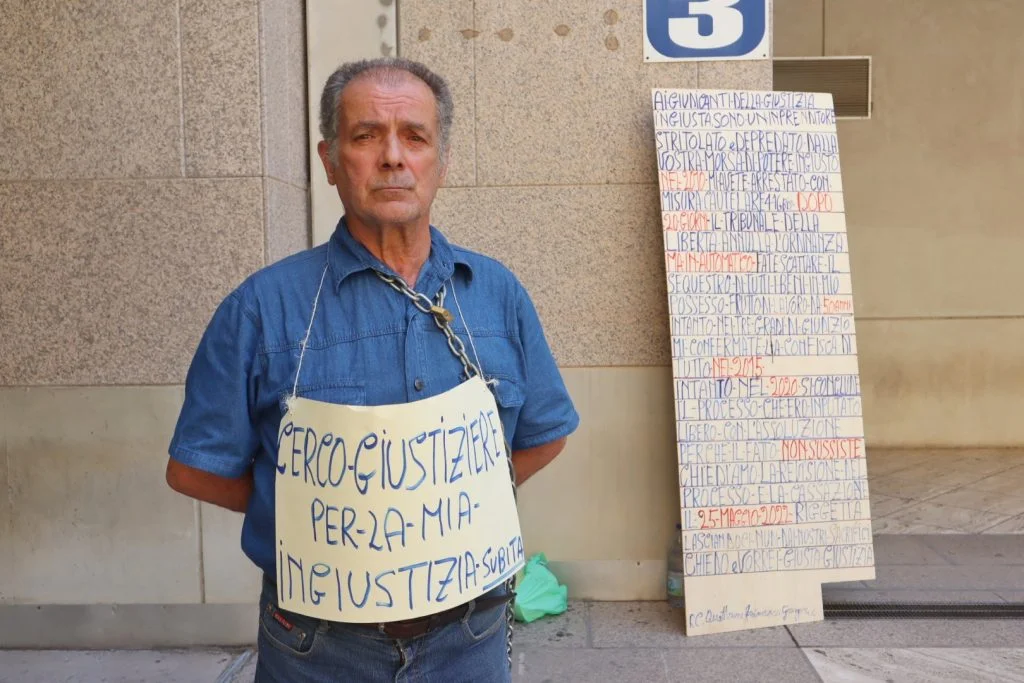 3
AI GIUDICANTI DELLA GIUSTIZIA
INGIUSTA SONO UN INPRENDITORE
STRITOLATO e DEPREDATO DALLA
VOSTRA MORSA DI POTERE INGIUSTO
NEL 2010 MI AVETE ARRESTATO CON
MISURA CAUTELARE 416BIS DOPO
20 GIORNI IL TRIBUNALE DELLA
LIBERTA ANNULLA L'ORDINANZA
MA IN AUTOMATICO FATE SCATTARE IL
SEQUESTRO DI TUTTI I BENI IN MIO
POSSESSO FRUTTO DI LAVORO DA 50 ANNI
INTANTO NEI TRE GRADI DI GIUDIZIO
MI CONFERMATE LA CONFISCA DI
TUTTO NEL 2015
INTANTO NEL 2020 SI CONCLUDE
IL PROCESSO CHE ERO INPUTATO
LIBERO CON L'ASSOLUZIONE
PERCHE IL FATTO NON SUSSISTE
CHIEDIAMO LA REVISIONE DEL
PROCESSO E LA CASSAZIONE
IL 25 MAGGIO 2022 RIGGETTA
LASCIANDOCI NUDI DAI NOSTRI SACRIFICI
CHIEDO e VORREI GIUSTA GIUSTIZIA
R.C.
CERCO-GIUSTIZIERE
PER-LA-MIA-
INGIUSTIZIA-SUBITA